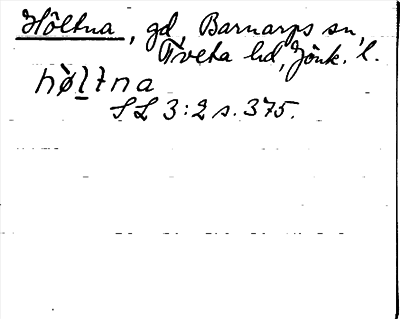 Hôltna, gd, Barnarps sn,
Tveta hd, Jönk. l.
hø̀l̲tna
SL 3:2 s. 375.